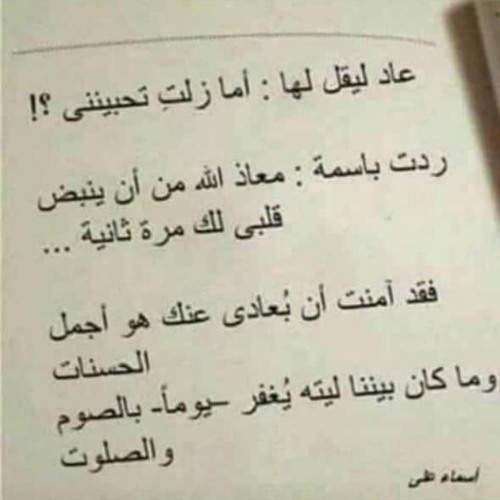 عاد ليقل لها : أما زلتِ تحبيننى ؟!
ردت باسمة : معاذ الله من أن ينبض
قلبى لك مرة ثانية ...
فقد آمنت أن بُعادى عنك هو أجمل
الحسنات
وما كان بيننا ليته يُغفر –يوماً- بالصوم
والصلوت
أسماء على